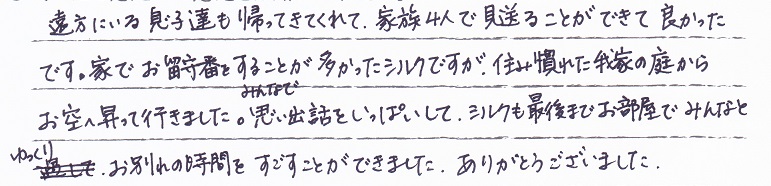 遠方にいる息子達も帰ってきてくれて、家族4人で見送ることができて良かった
です。家でお留守番をすることが多かったシルクですが、住み慣れた我家の庭から
お空へ昇って行きました。みんなで思い出話をいっぱいして、シルクも最後までお部屋でみんなと
ゆっくり、お別れの時間をすごすことができました。ありがとうございました。